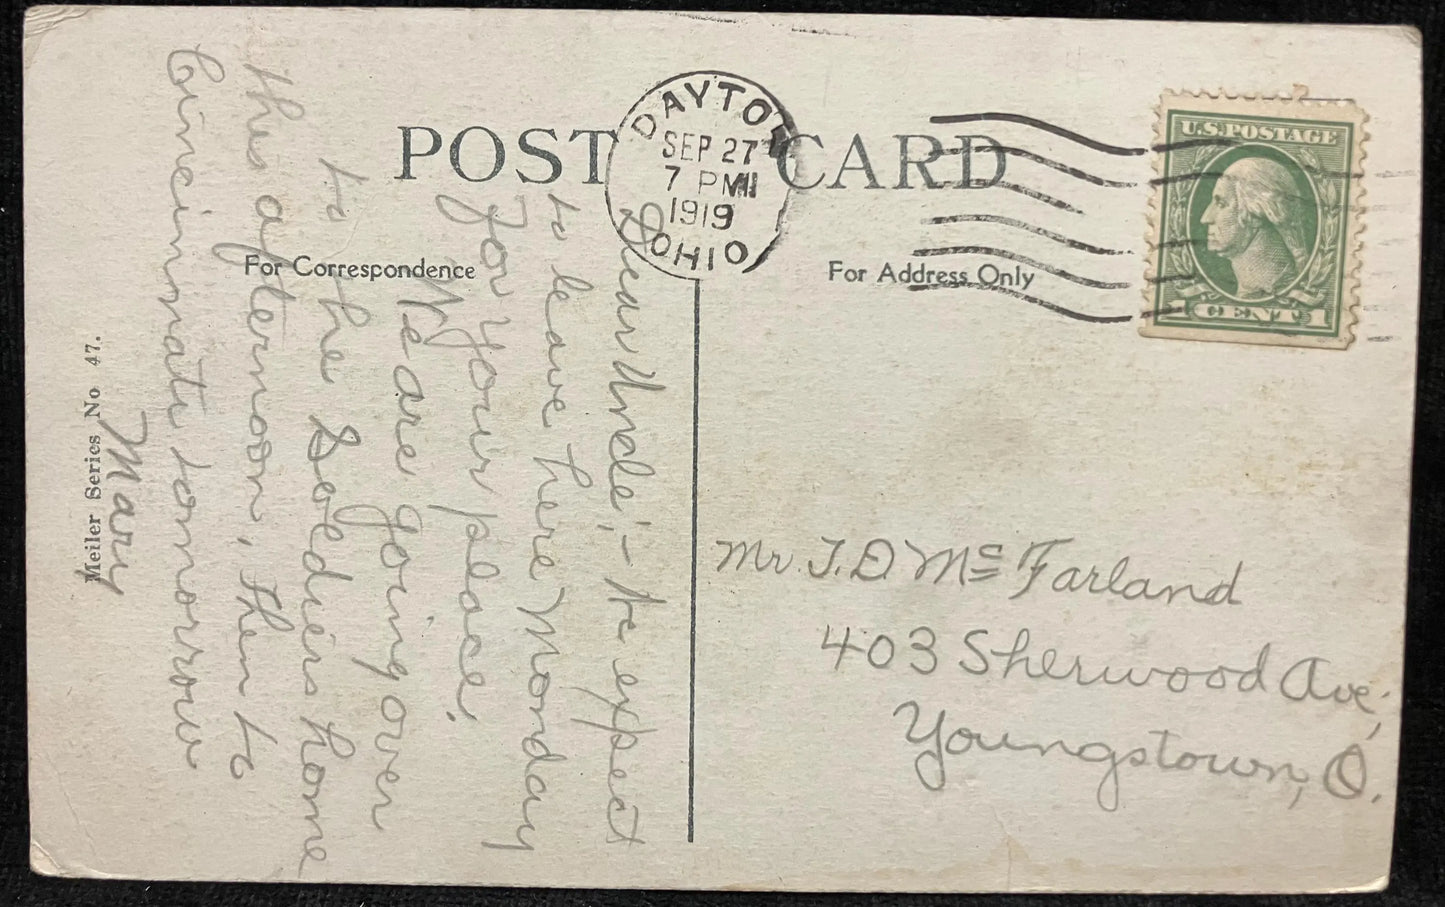 POST CARD
For Correspondence
For Address Only
DAYTON
SEP 27
7 PM
1919
OHIO
U.S. POSTAGE
1 CENT 1
Dear Uncle; - We expect
to leave here Monday
for your place.
We are going over
to the Soldiers home
this afternoon, then to
Cincinnati tomorrow
Mary
Meiler Series No 47.
Mr. J. D. McFarland
403 Sherwood Ave,
Youngstown, O.